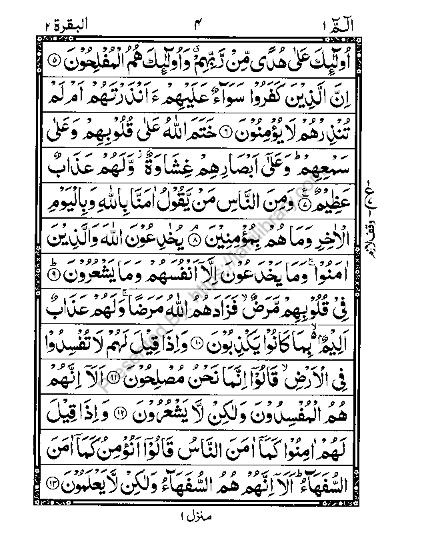 الٓمّٓ ۱ ۴ البقرة ۲
اُولٰٓئِكَ عَلٰى هُدًى مِّنْ رَّبِّهِمْ ۗ وَاُولٰٓئِكَ هُمُ الْمُفْلِحُوْنَ ۵
اِنَّ الَّذِيْنَ كَفَرُوْا سَوَآءٌ عَلَيْهِمْ ءَاَنْذَرْتَهُمْ اَمْ لَمْ
تُنْذِرْهُمْ لَا يُؤْمِنُوْنَ ۶ خَتَمَ اللّٰهُ عَلٰى قُلُوْبِهِمْ وَعَلٰى
سَمْعِهِمْ ؕ وَعَلٰٓى اَبْصَارِهِمْ غِشَاوَةٌ ۫ وَّلَهُمْ عَذَابٌ
عَظِيْمٌ ۷ وَمِنَ النَّاسِ مَنْ يَّقُوْلُ اٰمَنَّا بِاللّٰهِ وَبِالْيَوْمِ
الْاٰخِرِ وَمَا هُمْ بِمُؤْمِنِيْنَ ۸ يُخٰدِعُوْنَ اللّٰهَ وَالَّذِيْنَ
اٰمَنُوْا ۚ وَمَا يَخْدَعُوْنَ اِلَّاۤ اَنْفُسَهُمْ وَمَا يَشْعُرُوْنَ ۹
فِيْ قُلُوْبِهِمْ مَّرَضٌ ۙ فَزَادَهُمُ اللّٰهُ مَرَضًا ۚ وَلَهُمْ عَذَابٌ
اَلِيْمٌۢ ۙ بِمَا كَانُوْا يَكْذِبُوْنَ ۱۰ وَاِذَا قِيْلَ لَهُمْ لَا تُفْسِدُوْا
فِي الْاَرْضِ ۙ قَالُوْٓا اِنَّمَا نَحْنُ مُصْلِحُوْنَ ۱۱ اَلَاۤ اِنَّهُمْ
هُمُ الْمُفْسِدُوْنَ وَلٰكِنْ لَّا يَشْعُرُوْنَ ۱۲ وَاِذَا قِيْلَ
لَهُمْ اٰمِنُوْا كَمَآ اٰمَنَ النَّاسُ قَالُوْٓا اَنُؤْمِنُ كَمَآ اٰمَنَ
السُّفَهَآءُ ؕ اَلَاۤ اِنَّهُمْ هُمُ السُّفَهَآءُ وَلٰكِنْ لَّا يَعْلَمُوْنَ ۱۳
منزل ۱